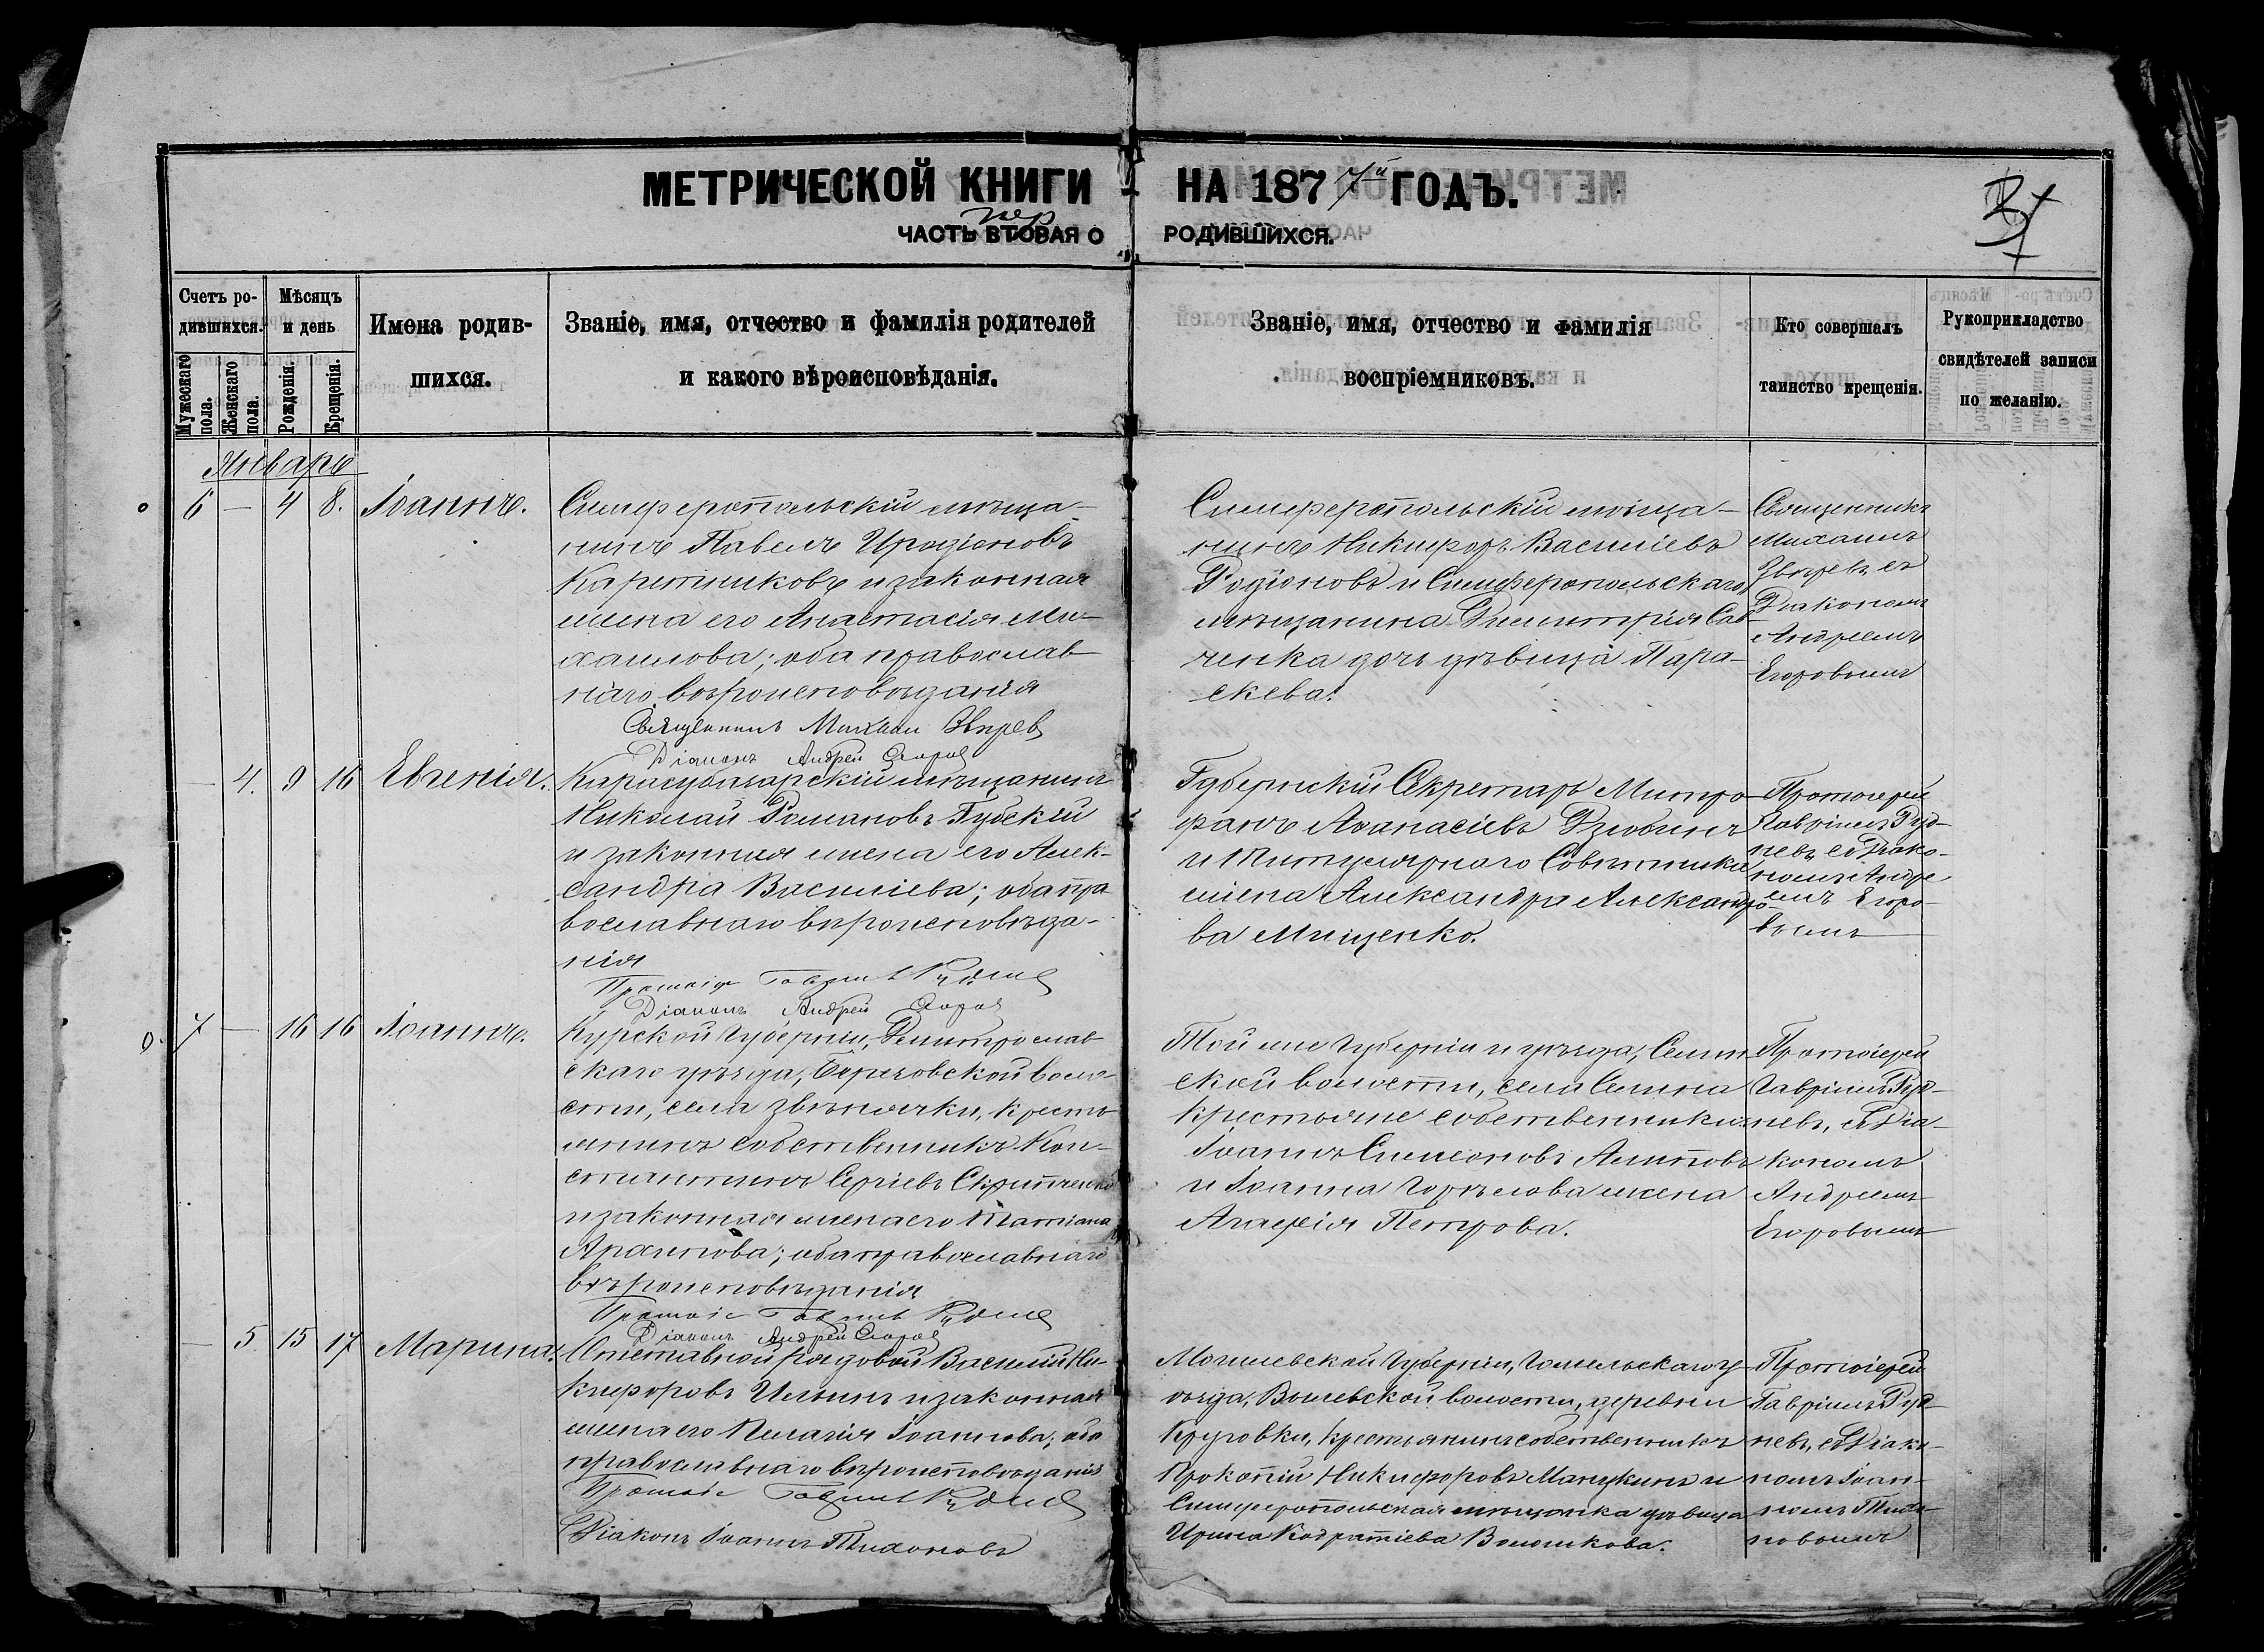 МЕТРИЧЕСКОЙ КНИГИ НА 1877й ГОДЪ.
пер
ЧАСТЬ ВТОРАЯ О РОДИВШИХСЯ.
Счетъ родившихся.
Мужескаго пола.
Женскаго пола.
Мѣсяцъ и день
Рожденія.
Крещенія.
Имена родив-
шихся.
Званіе, имя, отчество и фамилія родителей
и какого вѣроисповѣданія.
Званіе, имя, отчество и фамилія
воспріемниковъ.
Кто совершалъ
таинство крещенія.
Рукоприкладство
свидѣтелей записи
по желанію.
Январь
6 — 4 8. Іоаннъ.
Симферопольскій мѣща-
нинъ Павелъ Иродіоновъ
и законная
жена его Анастасія Ми-
хаилова; оба православ-
наго вѣроисповѣданія
Священникъ Михаил Звѣрев
Діаконъ Андрей Егоров
Симферопольскій мѣща-
нинъ Никифоръ Василіевъ
Родіоновъ и Симферопольскаго
мѣщанина Димитрія Сав-
ченка дочь дѣвица Пара-
скева.
Священникъ
Михаилъ
Звѣревъ съ
Діакономъ
Андреемъ
Егоровымъ
— 4. 9 16 Евгенія.
Карасубазарскій мѣщанинъ
Николай Романовъ Губскій
и законная жена его Алек-
сандра Василіева; оба пра
вославнаго вѣроисповѣда-
нія
Протоіер Гавриил Руднев
Діаконъ Андрей Егоров
Губернскій Секретарь Митро-
фанъ Аѳанасіевъ Дзюбинъ
и Титулярнаго Совѣтника
жена Александра Александро-
ва Мищенко.
Протоіерей
Гавріилъ Руд-
невъ, съ Діако-
номъ Андре
емъ Егоро-
вымъ
7 — 16 16 Іоаннъ.
Курской Губерніи, Дмитрослав
скаго уѣзда, Беричовской воло-
сти, села Звѣнячки, кресть
янинъ собственникъ Кон-
стантинъ Сергіевъ Скрипченко
и законная жена его Татіана
Архипова; оба православнаго
вѣроисповѣданія
Протоіе Гавриил Руднев
Діаконъ Андрей Егоров
Той же Губерніи и уѣзда, Селин
ской волости, села Селина
крестьяне собственники
Іоаннъ Симеоновъ Алиповъ
и Іоанна Горѣлова жена
Агафія Петрова.
Протоіерей
Гавріилъ Руд-
невъ, съ Діа-
кономъ
Андреемъ
Егоровымъ
— 5 15 17 Марина.
Отставной рядовой Василій Ни-
кифоровъ Ильинъ и законная
жена его Пелагія Іоаннова; оба
православнаго вѣроисповѣданія
Протоіе Гавриил Руднев
Діаконъ Іоаннъ Тихоновъ
Могилевской Губерніи, Гомельскаго у
ѣзда, волости, деревни
Круговки, крестьянинъ собственникъ
Прокопій Никифоровъ Манукинъ и
Симферопольская мѣщанка дѣвица
Ирина Кодратіева Волошкова.
Протоіерей
Гавріилъ Руд
невъ, съ Діако-
номъ Іоан-
номъ Тихо
новымъ